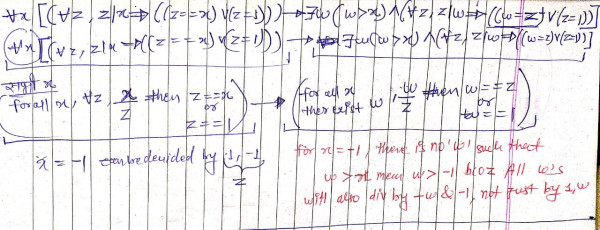 ∀x [(∀z, z|x ⇒ ((z==x) ∨ (z=1))) → ∃w (w>x) ∧ (∀z, z|w ⇒ ((w=z) ∨ (z=1)))]
∀x [(∀z, z|x → ((z==x) ∨ (z=1))) → ∃w (w>x) ∧ (∀z, z|w ⇒ ((w=z) ∨ (z=1)))]
for all x, ∀z, x/z then z==x or z==1 → for all x there exist w, w/z then w==z or w==1
x = -1 can be devided by 1, -1
z
for x = -1, there is no 'w' such that
w > x mean w > -1 bcoz All w's
will also div by -w & -1, not just by 1, w